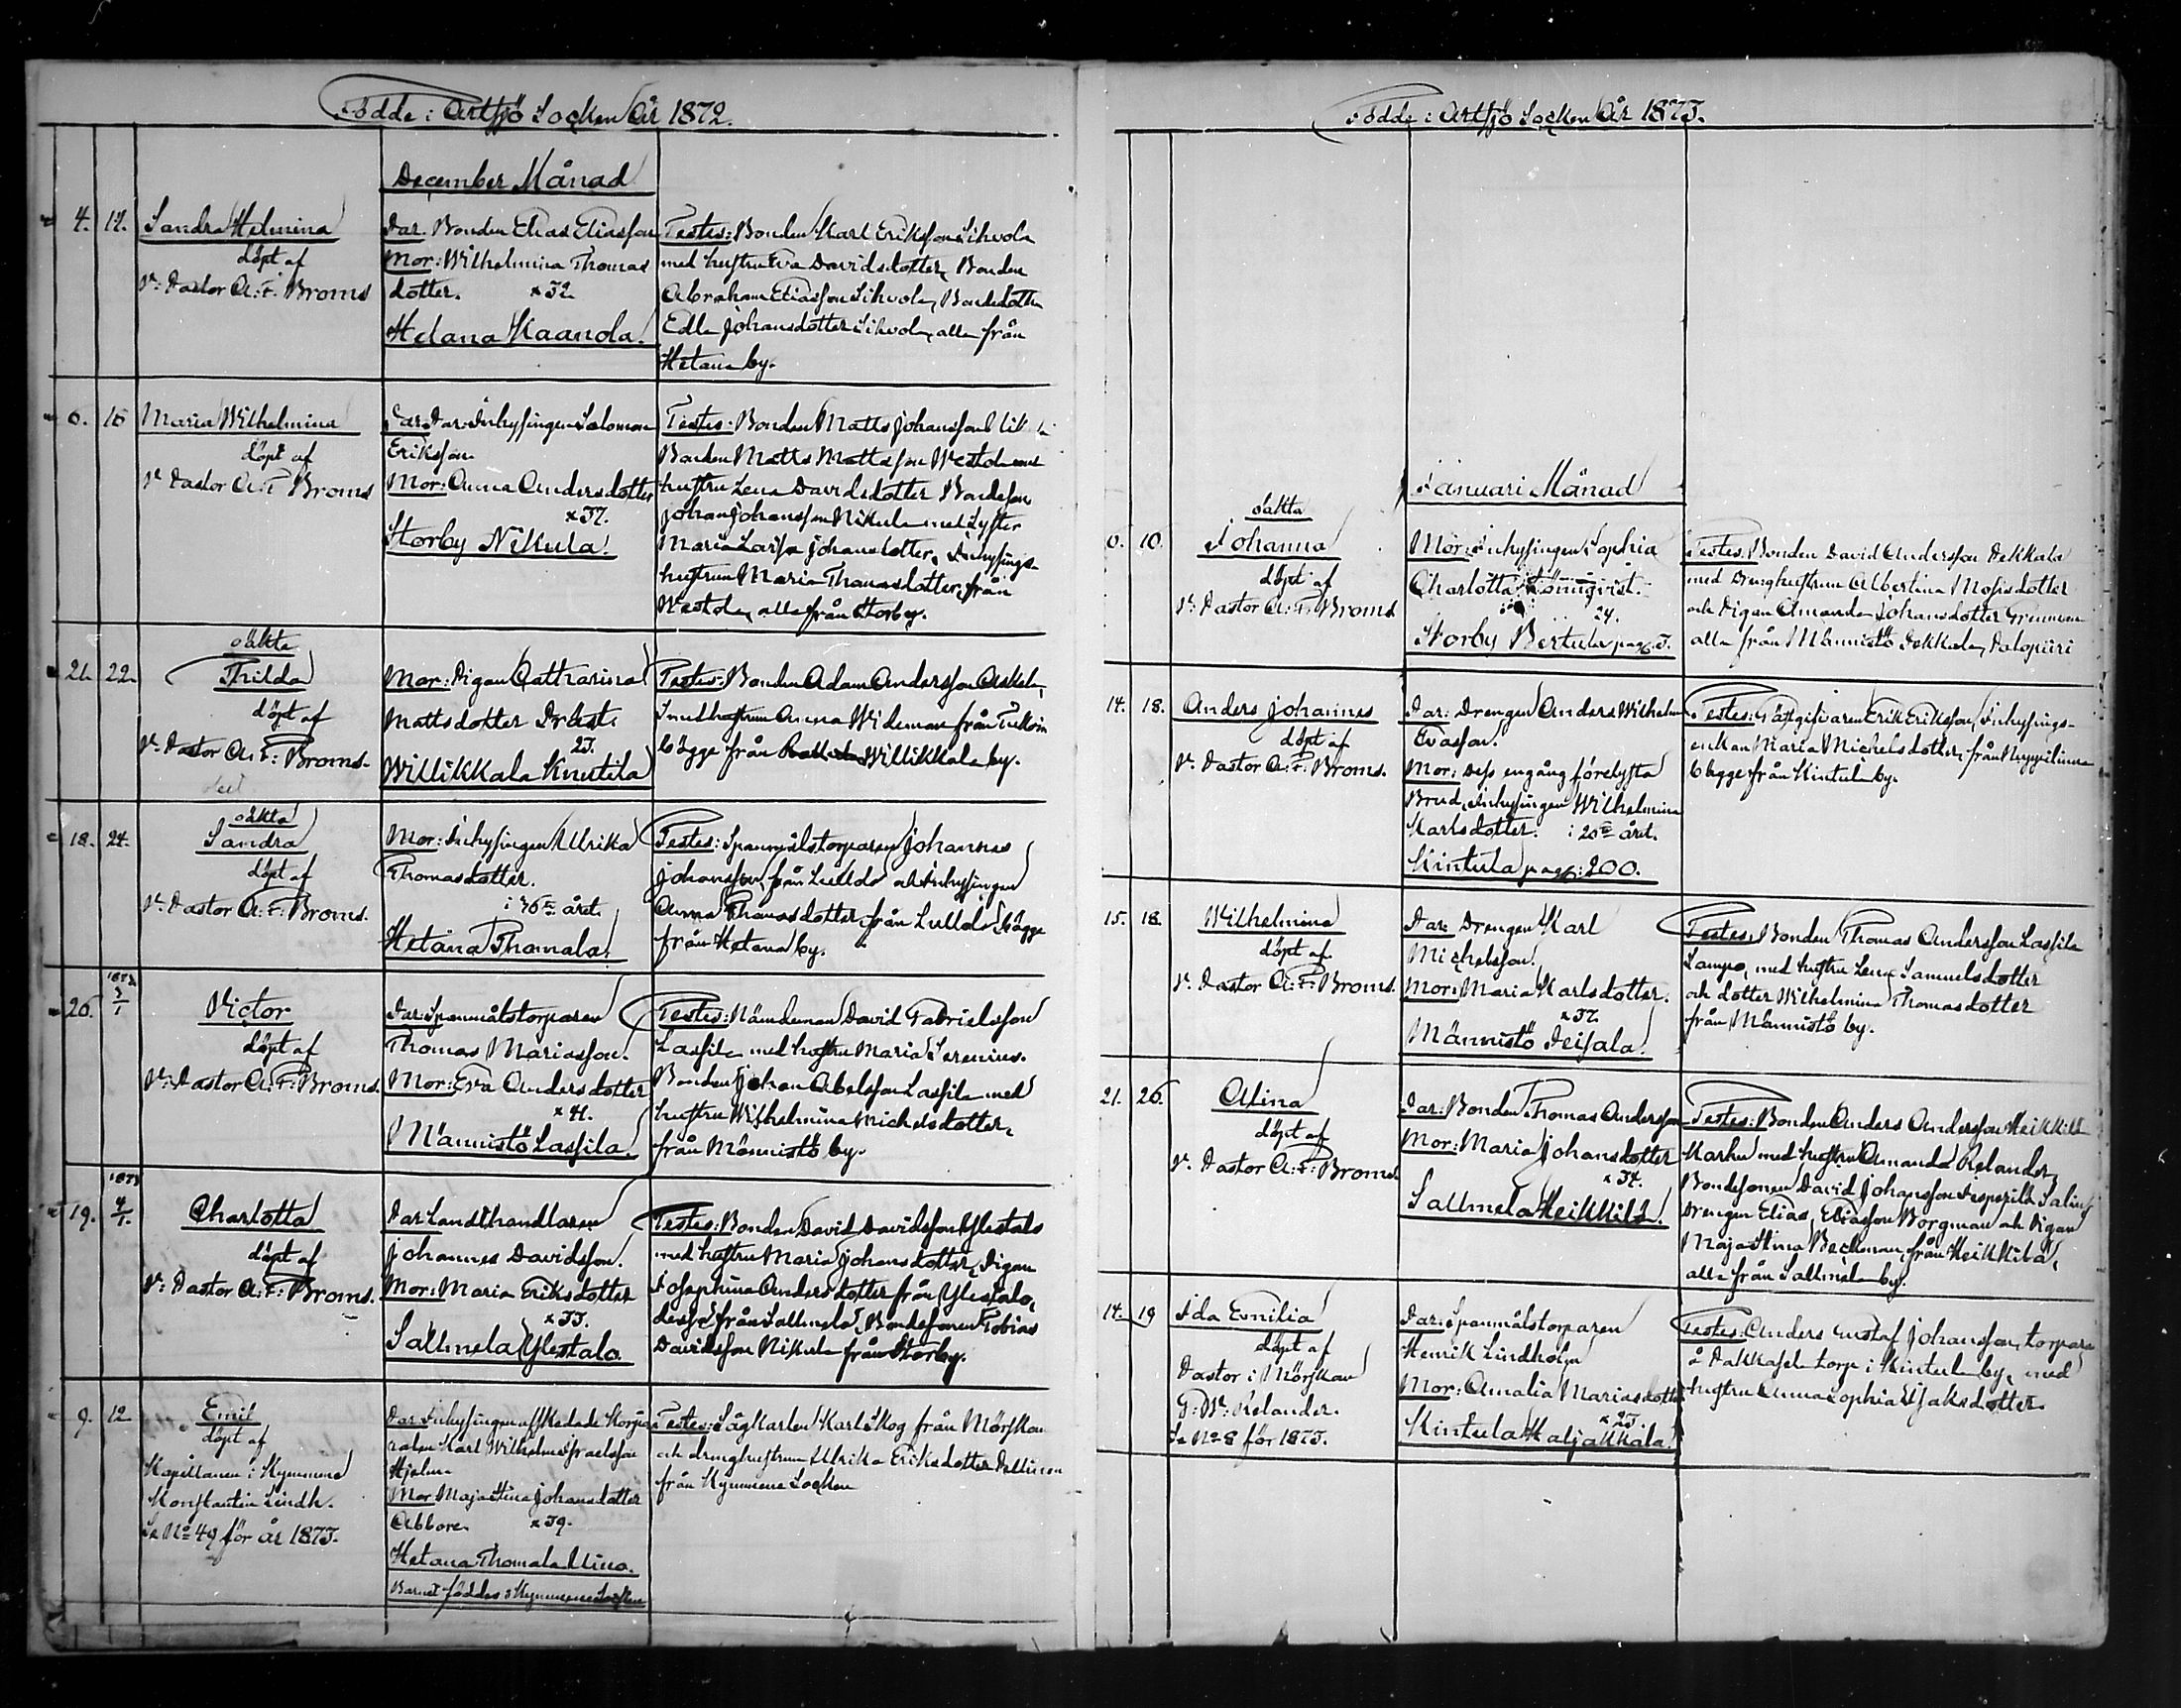 Födde i Artsjö Socken År 1872.
December Månad
4. 12. Sandra Helmina
döpt af
v. Pastor A: F: Broms
Far. Bonden Elias Eliasson
Mor: Wilhelmina Thomas
dotter. x 32.
Hetana Kaanola.
Testes: Bonden Karl Eriksson Sihvola
med hustru Eva Davidsdotter, Bonden
Abraham Eliasson Sihvola, Bondedottern
Edla Johansdotter Sihvola, alla från
Hetana by.
6. 16 Maria Wilhelmina
döpt af
v. Pastor A: F Broms
Far Inhysingen Salomon
Eriksson
Mor: Anna Andersdotter
x 37.
Storby Nikula.
Testes: Bonden Matts Johansson
Bonden Matts Mattsson Westola med
hustru Lena Davidsdotter Bondeson
Johan Johansson Nikula med Syster
Maria Lovisa Johansdotter, Inhysings-
hustrun Maria Thomasdotter, från
Westola, alla från Storby.
21. 22. oäkta
Thilda
döpt af
v. Pastor A: F: Broms.
Mor: Pigan Catharina
Mattsdotter Präst.
23.
Willikkala Knutila
Testes: Bonden Adam Andersson Askola,
Smedhustrun Anna Wideman från
bägge från Willikkala by.
18. 24. oäkta
Sandra
döpt af
v. Pastor A: F: Broms.
Mor: Inhysingen Ulrika
Thomasdotter.
i 36te året.
Hetana Thomala.
Testes: Spanmålstorparen Johannes
Johansson från Lullo och Inhysingen
Anna Thomasdotter från Lullo, bägge
från Hetana by.
26. 1873 3/1 Victor
döpt af
v. Pastor A: F: Broms.
Far: Spanmålstorparen
Thomas Mariasson.
Mor: Eva Andersdotter
x 41.
Männistö Lassila.
Testes: Nämdeman David Gabrielsson
Lassila med hustru Maria Serenius.
Bonden Johan Abelsson Lassila med
hustru Wilhelmina Michelsdotter,
från Männistö by.
19. 1873 4/1. Charlotta
döpt af
v. Pastor A: F: Broms.
Far Landthandlaren
Johannes Davidsson.
Mor: Maria Eriksdotter
x 33.
Sallmela Ylestalo.
Testes: Bonden David Davidsson Ylestalo
med hustru Maria Johansdotter, Pigan
Josephina Andersdotter från Ylestalo,
desse från Sallmela, Bondesonen Tobias
Davidsson Nikula från Storby.
9. 12 Emil
döpt af
Kapellanen i Kymmene
Konstantin Lindh.
Se No 49 för år 1873.
Far Inhysingen afskedade Korpo
ralen Karl Wilhelm Israelsson
Hjelm
Mor Maja Stina Johansdotter
Abbore x 39.
Hetana Thomala Uino.
Barnet föddes i Kymmene Socken
Testes: Sågkarlen Karl Skog från Mörskom
och drenghustrun Ulrika Eriksdotter
från Kymmene Socken
Födde i Artsjö Socken År 1873.
Januari Månad
6. 10. oäkta
Johanna
döpt af
v. Pastor A: F: Broms
Mor: Inhysingen Sophia
Charlotta Lönnqvist.
24.
Storby Bertula pag. 3.
Testes: Bonden David Andersson Pekkala
med Drenghustrun Albertina Mosisdotter
och Pigan Amanda Johansdotter
alla från Männistö Pekkala,
14. 18. Anders Johannes
döpt af
v. Pastor A: F: Broms.
Far: Drengen Anders Wilhelm
Evasson.
Mor: Dess engång förelysta
Brud, Inhysingen Wilhelmina
Karlsdotter. i 20de året.
Kintula pag: 200.
Testes: Erik Eriksson, Inhysings-
enkan Maria Michelsdotter, från
bägge från Kintula by.
15. 18. Wilhelmina
döpt af
v. Pastor A: F: Broms.
Far: Drengen Karl
Michelsson.
Mor: Maria Karlsdotter.
x 37.
Männistö Peisala.
Testes: Bonden Thomas Andersson Lassila
Sampo, med hustru Lena Samuelsdotter
och dotter Wilhelmina Thomasdotter
från Männistö by.
21. 26. Alina
döpt af
v. Pastor A: F: Broms.
Far: Bonden Thomas Andersson
Mor: Maria Johansdotter
x 34.
Sallmela Heikkilä.
Testes: Bonden Anders Andersson Heikkilä
Karhu med hustru Amanda Relander,
Bondesonen David Johansson
Drengen Elias Eliasson Borgman och Pigan
Maja Stina Beckman från Heikkilä,
alla från Sallmela by.
14. 19 Ida Emilia
döpt af
Pastor i Mörskom
G: W: Relander.
Se No 8 för 1873.
Far: Spanmålstorparen
Henrik Lindholm
Mor: Amalia Mariasdotter
x 23
Kintula Haljakkala.
Testes: Anders Gustaf Johansson, torpare
å torp i Kintula by, med
hustru Anna Sophia Isaksdotter.